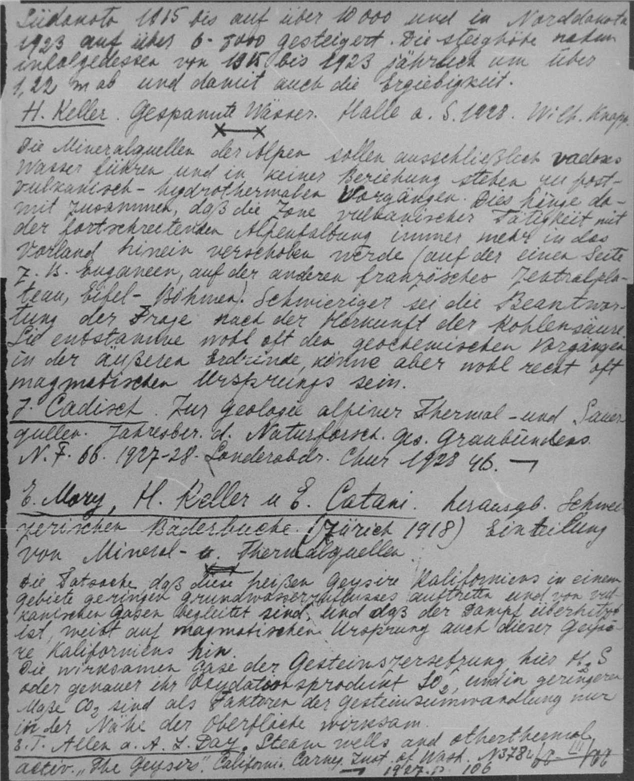 Süddakota 1915 bis auf über 10 000 und in Norddakota
1923 auf über 6-8000 gesteigert. Die Steighöhe nahm
infolgedessen von 1915 bis 1923 jährlich um über
1,22 m ab und damit auch die Ergiebigkeit.
H. Keller. Gespannte Wässer. Halle a. S. 1928. Wilh. Knapp.
Die Mineralquellen der Alpen sollen ausschließlich vadoses
Wasser führen und in keiner Beziehung stehen zu post-
vulkanisch-hydrothermalen Vorgängen. Dies hänge da-
mit zusammen, daß die Zone vulkanischer Tätigkeit mit
der fortschreitenden Alpenfaltung immer mehr in das
Vorland hinein verschoben werde (auf der einen Seite
z. B. Euganeen, auf der anderen französches Zentralpla-
teau, Eifel-Böhmen). Schwieriger sei die Beantwor-
tung der Frage nach der Herkunft der Kohlensäure
Sie entstamme wohl oft den geochemischen Vorgängen
in der äußeren Erdrinde, könne aber wohl recht oft
magmatischen Ursprungs sein.
J. Cadisch. Zur Geologie alpiner Thermal- und Sauer-
quellen. Jahresber. d. Naturforsch. Ges. Graubündens
N. F. 66. 1927-28. Sonderabdr. Chur 1928 46.
E. Mory, H. Keller u E. Catani. herausgb. Schwei-
zerischen Bäderbuche. (Zürich 1918) Einteilung
von Mineral- u. Thermalquellen
Die Tatsache, daß diese heißen Geysire Kaliforniens in einem
Gebiete geringen Grundwasserzuflusses auftreten und von vul-
kanischen Gasen begleitet sind, und daß der Dampf überhitzt
ist, weist auf magmatischen Ursprung auch dieser Geysi-
re Kaliforniens hin.
Die wirksamen Gase der Gesteinszersetzung hies H2S
oder genauer ihr Oxydationsprodukt SO2, und in geringerem
Maße CO2 sind als Faktoren der Gesteinsumwandlung nur
in der Nähe der Oberfläche wirksam.
E. T. Allen a. A. L. Day. Steam wells and other thermal
activ. "The Geysers". Californi. Carneg. Inst. of Wash. N 378
1927. 106